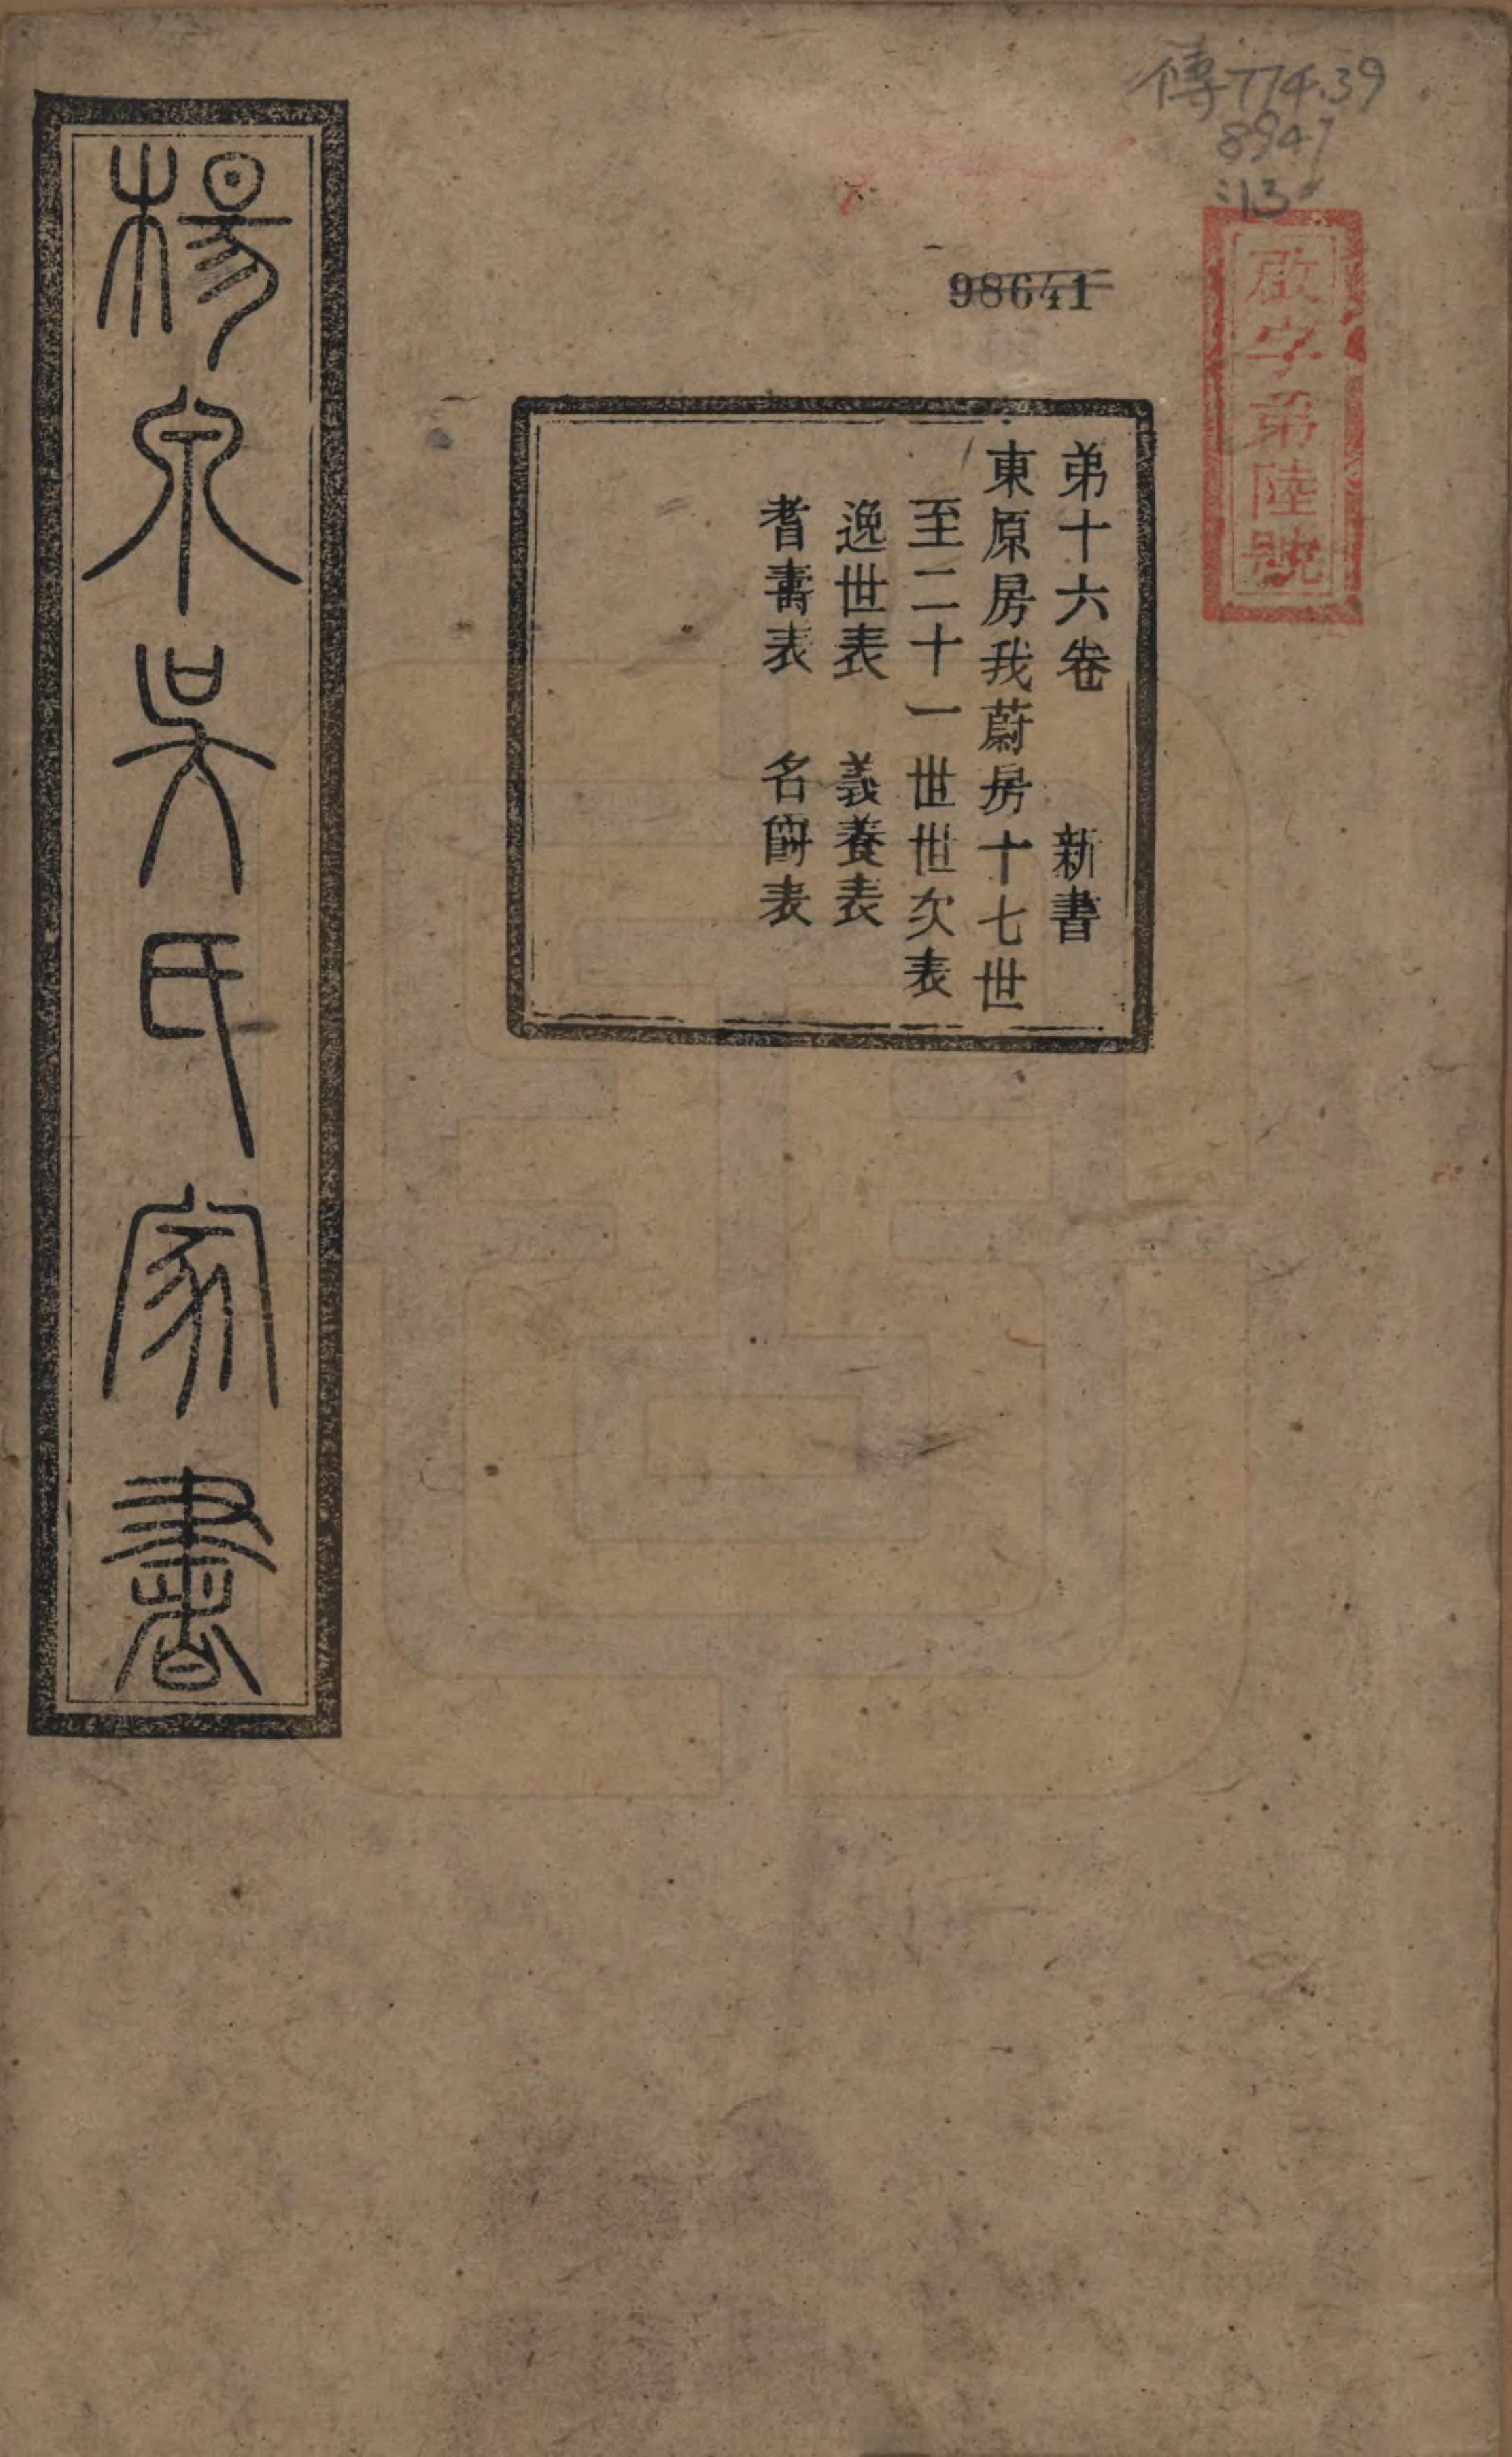 傳774.39
8947
:13
98641
啟字弟陸號
弟十六卷 新書
東原房我蔚房十七世
至二十一世世次表
逸世表 義養表
耆壽表 名爵表
楊泉吳氏家書